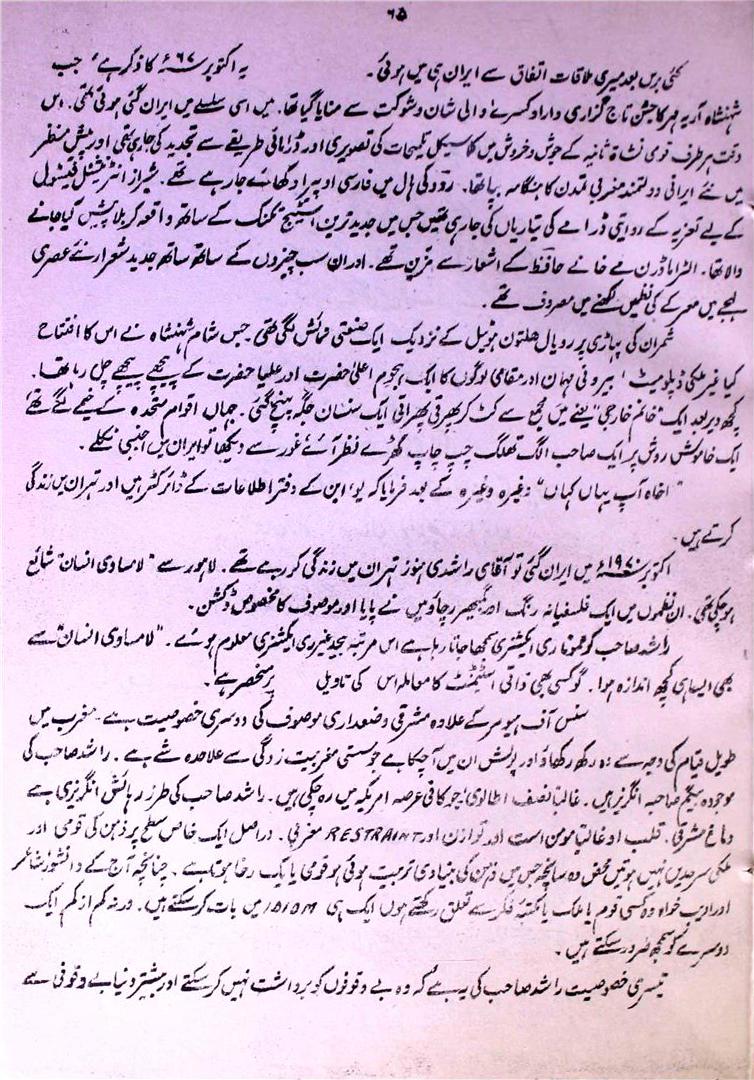 ۶۵
کئی برس بعد میری ملاقات اتفاق سے ایران ہی میں ہوئی۔ یہ اکتوبر ۶۷ء کا ذکر ہے، جب
شہنشاہ آریہ مہر کا جشن تاج گزاری دارا و کسرےٰ والی شان و شوکت سے منایا گیا تھا۔ میں اسی سلسلے میں ایران گئی ہوئی تھی۔ اس
وقت ہر طرف قومی نشاۃ ثانیہ کے جوش و خروش میں کلاسیکل تلمیحات کی تصویری اور ڈرامائی طریقے سے تجدید کی جا رہی تھی اور پیش منظر
میں نئے ایرانی دولتمند مغربی تمدن کا ہنگامہ بپا تھا۔ رودکی ہال میں فارسی اوپیرا دکھائے جا رہے تھے۔ شیراز انٹرنیشنل فیسٹول
کے لیے تعزیہ کے روایتی ڈرامے کی تیاریاں کی جا رہی تھیں جس میں جدید ترین اسٹیج تکنک کے ساتھ واقعہ کربلا پیش کیا جانے
والا تھا۔ الٹرا ماڈرن مے خانے حافظ کے اشعار سے مزین تھے۔ اور ان سب چیزوں کے ساتھ ساتھ جدید شعراء نئے عصری
لہجے میں معرکے کی نظمیں لکھنے میں مصروف تھے۔
شمران کی پہاڑی پر رویال ہلتون ہوٹیل کے نزدیک ایک صنعتی نمائش لگی تھی۔ جس شام شہنشاہ نے اس کا افتتاح
کیا غیر ملکی ڈپلومیٹ، بیرونی مہمان اور مقامی لوگوں کا ایک ہجوم اعلیٰ حضرت اور علیا حضرت کے پیچھے پیچھے چل رہا تھا۔
کچھ دیر بعد ایک "خانم خارجی" یعنے میں مجمع سے کٹ کر پھرتی پھراتی ایک سنسان جگہ پہنچ گئی۔ جہاں اقوام متحدہ کے خیمے لگے تھے
ایک خاموش روش پر ایک صاحب الگ تھلگ چپ چاپ کھڑے نظر آئے غور سے دیکھا تو ایران میں اجنبی نکلے۔
"اخاہ آپ یہاں کہاں" وغیرہ وغیرہ کے بعد فرمایا کہ یو این کے دفتر اطلاعات کے ڈائرکٹر ہیں اور تہران میں زندگی
کرتے ہیں۔
اکتوبر ۱۹۷۰ء میں ایران گئی تو آقای راشدی ہنوز تہران میں زندگی کر رہے تھے۔ لاہور سے "لا مساوی انسان" شائع
ہو چکی تھی۔ ان نظموں میں ایک فلسفیانہ رنگ اور گمبھیر رچاؤ میں نے پایا اور موصوف کا مخصوص ڈکشن۔
راشد صاحب کو عموماً ری ایکشنری سمجھا جاتا رہا ہے اس مرتبہ بیحد غیر ری ایکشنری معلوم ہوئے۔ "لا مساوی انسان" سے
بھی ایسا ہی کچھ اندازہ ہوا۔ گو کسی بھی ذاتی اسٹیمنٹ کا معاملہ اس کی تاویل پر منحصر ہے۔
سنس آف ہیومر کے علاوہ مشرقی وضعداری موصوف کی دوسری خصوصیت ہے۔ مغرب میں
طویل قیام کی وجہ سے وہ رکھ رکھاؤ اور پولش ان میں آ چکا ہے جو سستی مغربیت زدگی سے علاحدہ شے ہے۔ راشد صاحب کی
موجودہ بیگم صاحبہ انگریز ہیں۔ غالباً نصف اطالوی، جو کافی عرصہ امریکہ میں رہ چکی ہیں۔ راشد صاحب کی طرز رہائش انگریزی ہے
دماغ مشرقی۔ قلب او غالباً مومن است اور توازن اور RESTRAINT مغربی۔ دراصل ایک خاص سطح پر ذہن کی قومی اور
ملکی سرحدیں نہیں ہوتیں محض وہ سانچہ جس میں ذہن کی بنیادی تربیت ہوئی ہو قومی یا یک رخا ہوتا ہے۔ چنانچہ آج کے دانشور شاعر
اور ادیب خواہ وہ کسی قوم یا ملک یا مکتبۂ فکر سے تعلق رکھتے ہوں ایک ہی IDIOM میں بات کر سکتے ہیں۔ ورنہ کم از کم ایک
دوسرے کو سمجھ ضرور سکتے ہیں۔
تیسری خصوصیت راشد صاحب کی یہ ہے کہ وہ بے وقوفوں کو برداشت نہیں کر سکتے اور بیشتر دنیا بے وقوفی سے